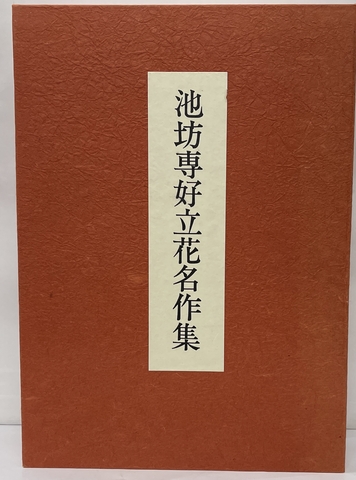 池坊専好立花名作集